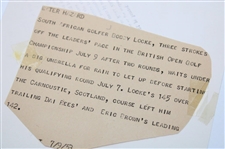 SOUTH AFRICAN GOLFER BOBBY LOCKE, THREE STROKES
OFF THE LEADERS' PACE IN THE BRITISH OPEN GOLF
CHAMPIONSHIP JULY 9 AFTER TWO ROUNDS, WAITS UNDER
A BIG UMBRELLA FOR RAIN TO LET UP BEFORE STARTING
HIS QUALIFYING ROUND JULY 7. LOCKE'S 145 OVER
THE CARNOUSTIE, SCOTLAND, COURSE LEFT HIM
TRAILING DAI REES' AND ERIC BROWN'S LEADING
142.
7/9/53